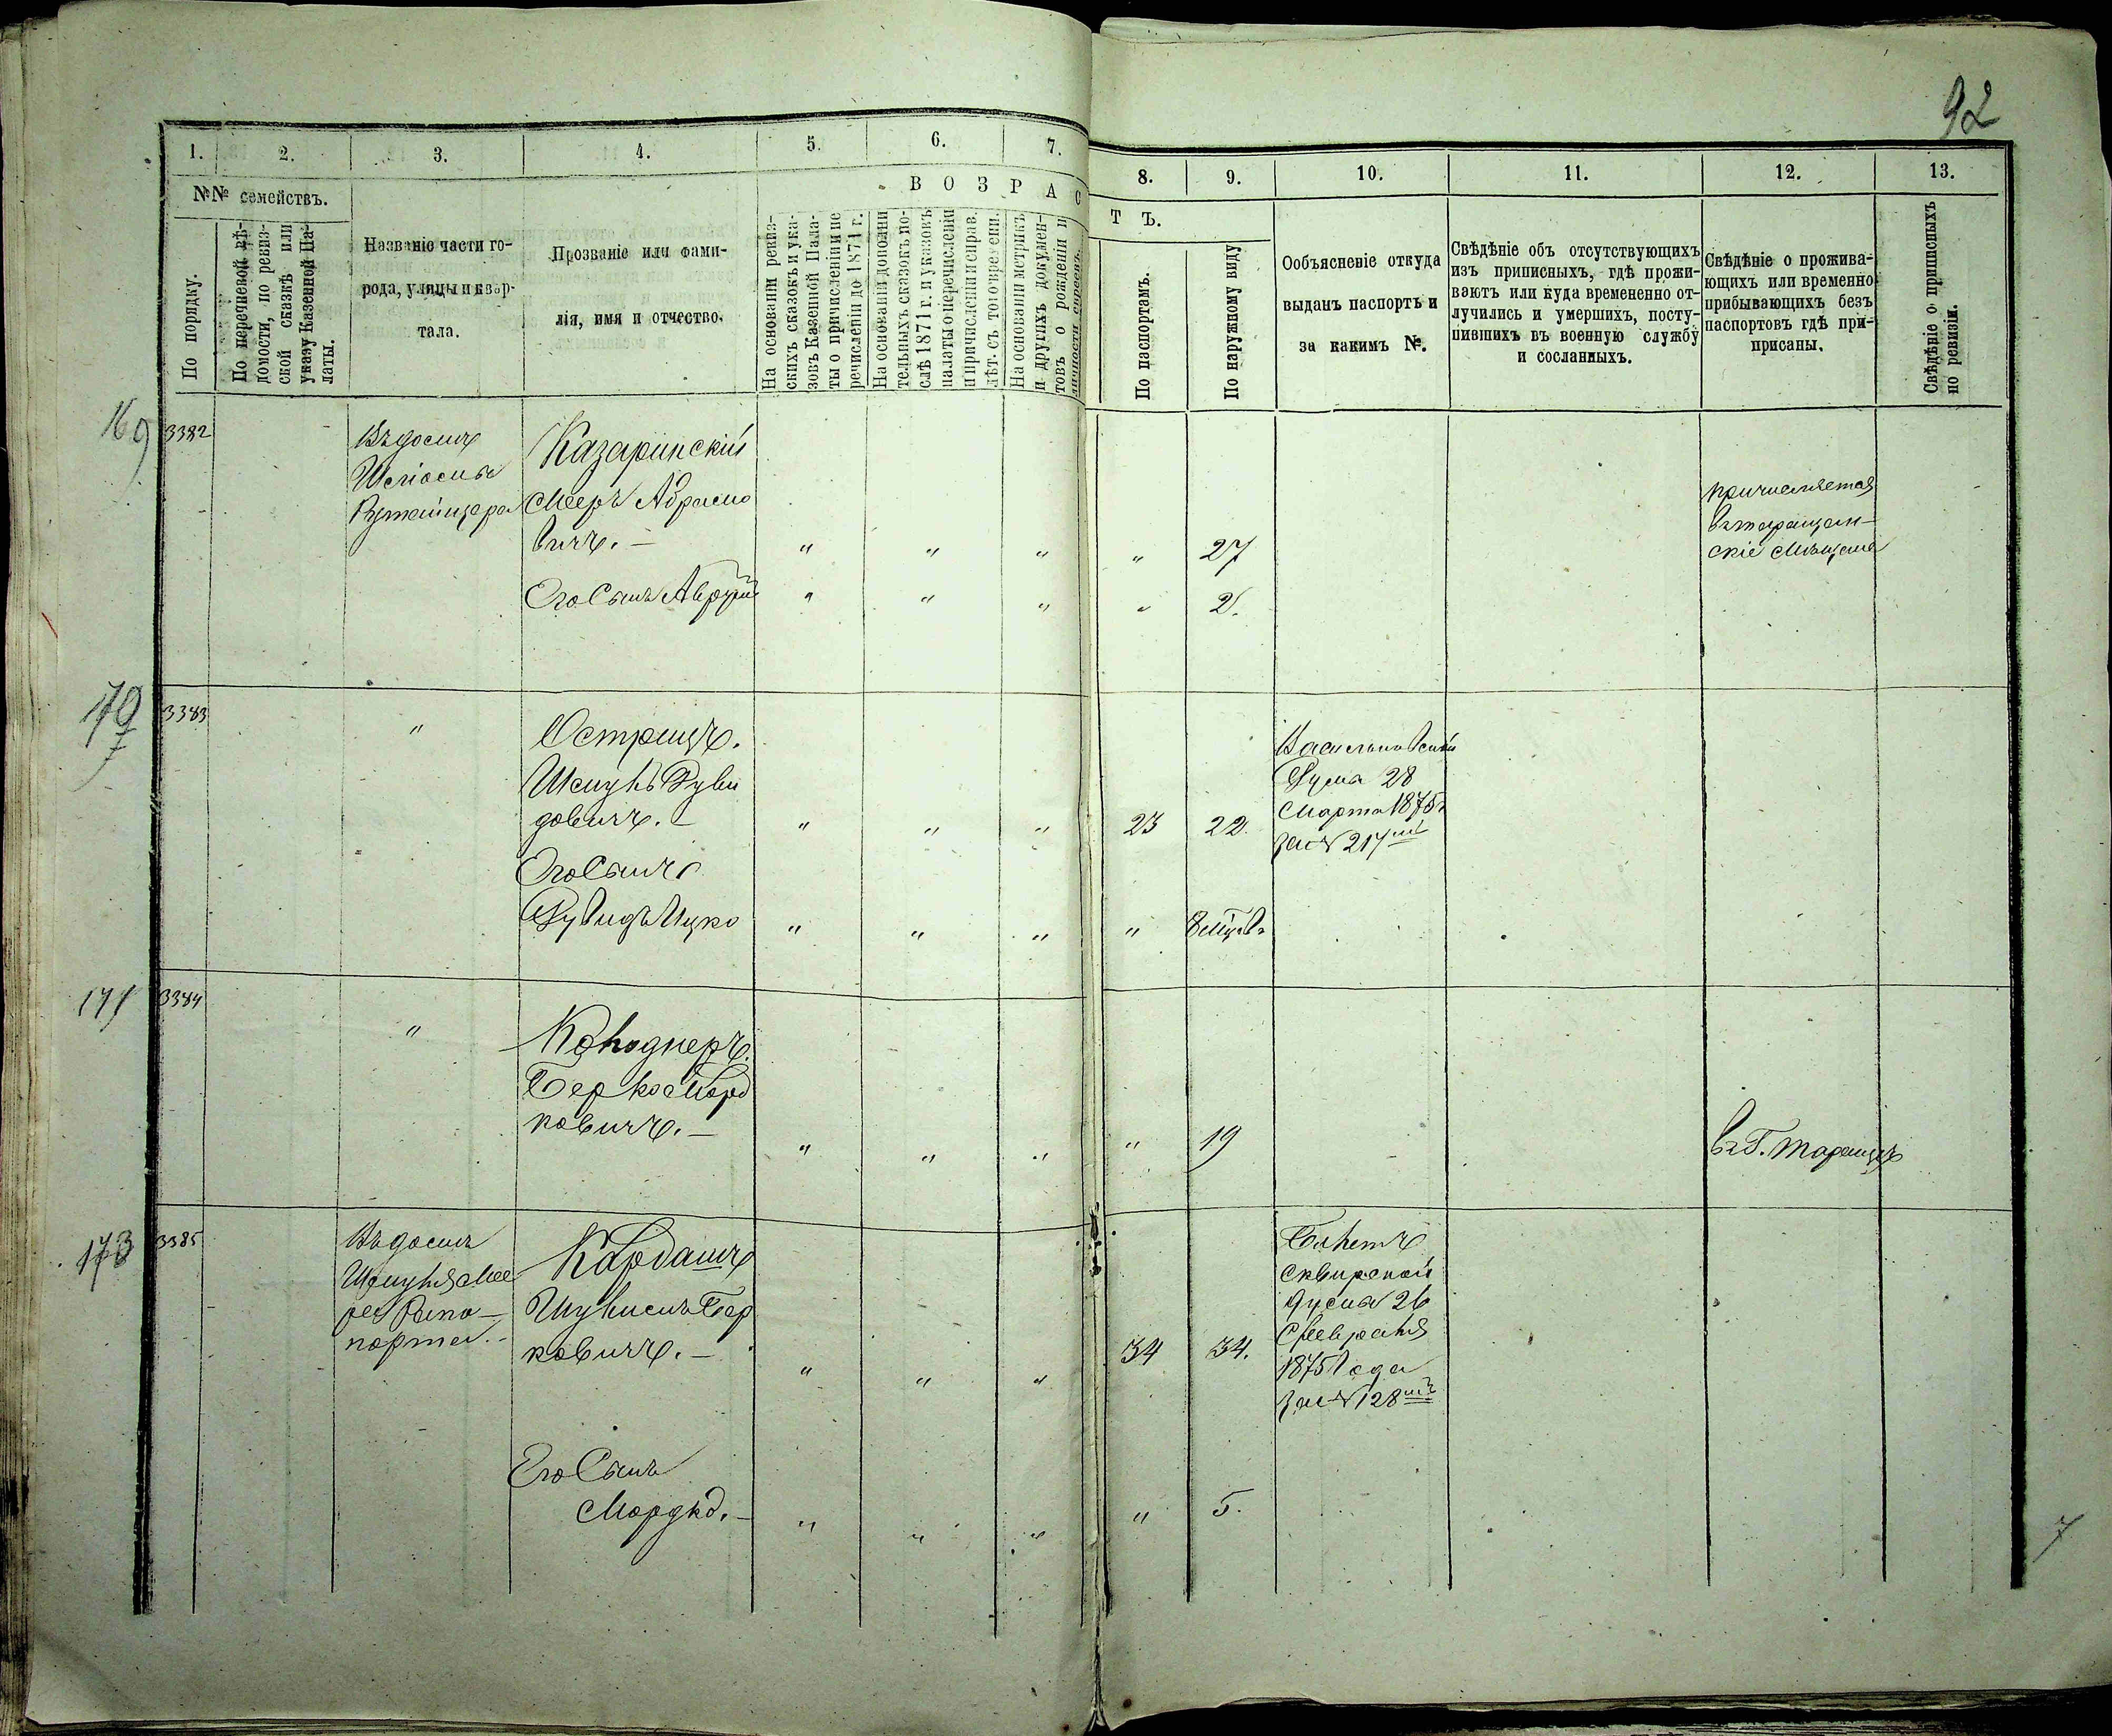 92
1. 2. 3. 4. 5. 6. 7.
8. 9. 10. 11. 12. 13.
№№ семействъ.
По порядку.
По перечневой вѣ-
домости, по ревиз-
ской сказкѣ или
указу Казенной Па-
латы.
Названіе части го-
рода, улицы и квар-
тала.
Прозваніе или фами-
лія, имя и отчество.
ВОЗРАС
ТЪ.
На основаніи ревиз-
скихъ сказокъ и ука-
зовъ Казенной Пала-
ты о причисленіи и пе
речисленіи до 1871 г.
На основаніи дополни
тельныхъ сказокъ по-
слѣ 1871 г. и указовъ
палаты о перечисленіи
и причисленіи и справ.
лѣт. съ того времени.
На основаніи метрикъ
и другихъ докумен-
товъ о рожденіи и
личности евреевъ.
По паспортамъ.
По наружному виду
Ообъясненіе откуда
выданъ паспортъ и
за какимъ №.
Свѣдѣніе объ отсутствующихъ
изъ приписныхъ, гдѣ прожи-
ваютъ или куда временно от-
лучились и умершихъ, посту-
пившихъ въ военную службу
и сосланныхъ.
Свѣдѣніе о прожива-
ющихъ или временно
прибывающихъ безъ
паспортовъ гдѣ при-
присаны.
Свѣдѣніе о приписныхъ
по ревизіи.
169 3382
Въ домѣ
Казаринскій
Мееръ Абрамо
вичъ. — " " " " 27
Его Сынъ Аврумъ " " " " 2.
причисляется
въ таращан-
скіе Мѣщане
170 3383 "
Острицъ.
Шмуль Руви
довичъ. — " " " 23 22.
Васильковской
Дума 28
Марта 1875 г
за № 217
Его Сынъ
Рувидъ Ицко " " " " 8 мѣс.
171 3384 "
Колоднеръ.
Берко Морд
ковичъ. — " " " " 19
въ Г. Таращѣ
173 3385
Въ домѣ
Шмуля Мее
ра Рапо-
порта.
Кардашъ
Шулимъ Бер
ковичъ. — " " " 34 34.
Билетъ
Сквирской
Думы 26
Февраля
1875 Года
за № 128
Его Сынъ
Мордко. — " " " " 5.
7